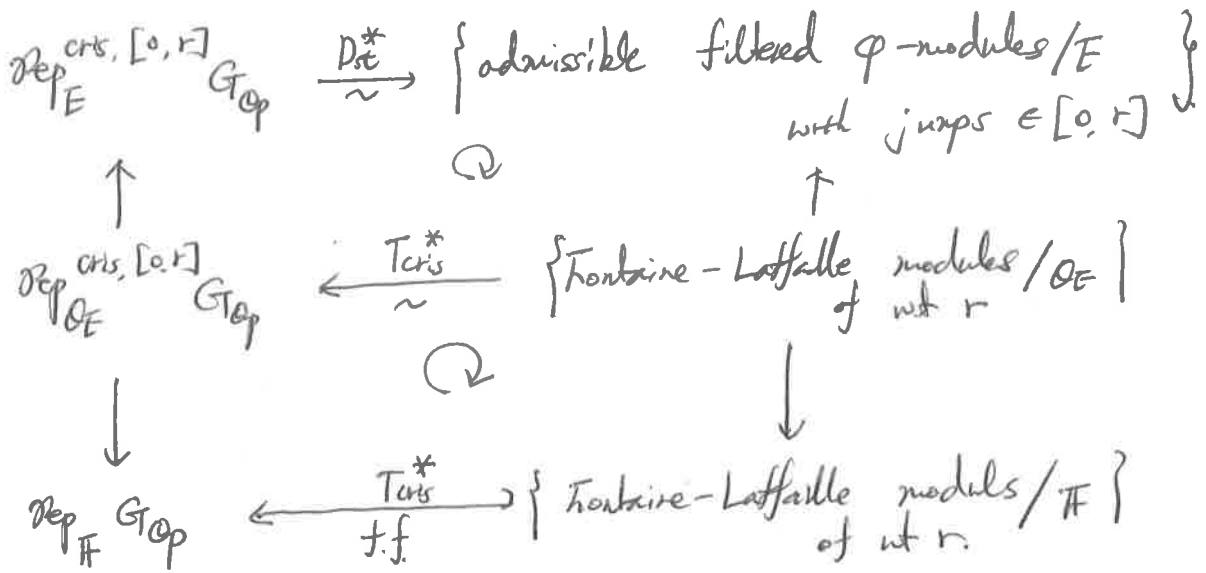 Rep_E^{cris, [0, r]} G_{Qp} D_{st}^* ~ { admissible filtered φ-modules/E
with jumps ∈ [0, r] }
Rep_{O_E}^{cris, [0, r]} G_{Qp} T_{cris}^* ~ { Fontaine-Laffaille modules/O_E
of wt r }
Rep_F G_{Qp} T_{cris}^* f.f. { Fontaine-Laffaille moduls/F
of wt r. }